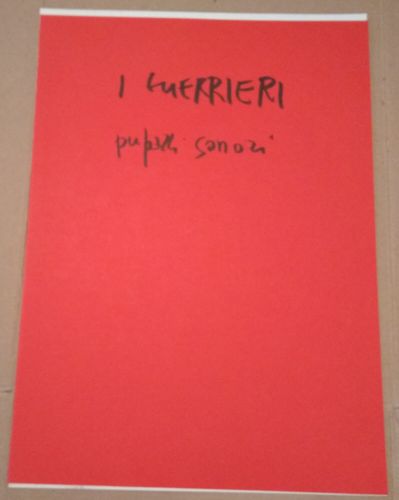 I GUERRIERI
pupazzi sonori